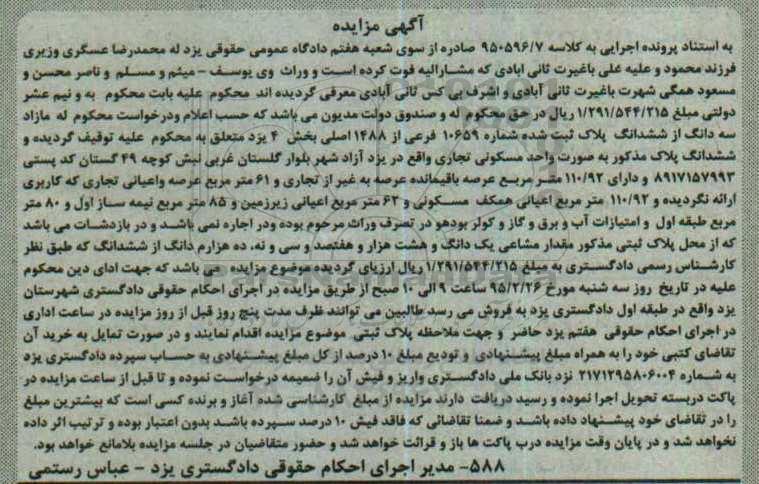 آگهی مزایده
به استناد پرونده اجرایی به کلاسه ۹۵۰۵۹۶/۷ صادره از سوی شعبه هفتم دادگاه عمومی حقوقی یزد له محمدرضا عسگری وزیری
فرزند محمود و علیه علی باغیرت ثانی ابادی که مشارالیه فوت کرده است و وراث وی یوسف - میثم و مسلم و ناصر محسن و
مسعود همگی شهرت باغیرت ثانی آبادی و اشرف بی کس ثانی آبادی معرفی گردیده اند محکوم علیه بابت محکوم به و نیم عشر
دولتی مبلغ ۱/۲۹۱/۵۴۴/۲۱۵ ریال در حق محکوم له و صندوق دولت مدیون می باشد که حسب اعلام ودرخواست محکوم له مازاد
سه دانگ از ششدانگ پلاک ثبت شده شماره ۱۰۶۵۹ فرعی از ۱۴۸۸ اصلی بخش ۴ یزد متعلق به محکوم علیه توقیف گردیده و
ششدانگ پلاک مذکور به صورت واحد مسکونی تجاری واقع در یزد آزاد شهر بلوار گلستان غربی نبش کوچه ۴۹ گستان کد پستی
۸۹۱۷۱۵۷۹۹۳ و دارای ۱۱۰/۹۲ متر مربع عرصه باقیمانده عرصه به غیر از تجاری و ۶۱ متر مربع عرصه واعیانی تجاری که کاربری
ارائه نگردیده و ۱۱۰/۹۲ متر مربع اعیانی همکف مسکونی و ۶۲ متر مربع اعیانی زیرزمین و ۸۵ متر مربع نیمه ساز اول و ۸۰ متر
مربع طبقه اول و امتیازات آب و برق و گاز و کولر بودهو در تصرف وراث مرحوم بوده ودر اجاره نمی باشد و در بازدشات می باشد
که از محل پلاک ثبتی مذکور مقدار مشاعی یک دانگ و هشت هزار و هفتصد و سی و نه، ده هزارم دانگ از ششدانگ که طبق نظر
کارشناس رسمی دادگستری به مبلغ ۱/۲۹۱/۵۴۴/۲۱۵ ریال ارزیای گردیده موضوع مزایده می باشد که جهت ادای دین محکوم
علیه در تاریخ روز سه شنبه مورخ ۹۵/۲/۲۶ ساعت ۹ الی ۱۰ صبح از طریق مزایده در اجرای احکام حقوقی دادگستری شهرستان
یزد واقع در طبقه اول دادگستری یزد به فروش می رسد طالبین می توانند ظرف مدت پنج روز قبل از روز مزایده در ساعت اداری
در اجرای احکام حقوقی هفتم یزد حاضر و جهت ملاحظه پلاک ثبتی موضوع مزایده اقدام نمایند و در صورت تمایل به خرید آن
تقاضای کتبی خود را به همراه مبلغ پیشنهادی و تودیع مبلغ ۱۰ درصد از کل مبلغ پیشنهادی به حساب سپرده دادگستری یزد
به شماره ۲۱۷۱۲۹۵۸۰۶۰۰۴ نزد بانک ملی دادگستری واریز و فیش آن را ضمیمه درخواست نموده و تا قبل از ساعت مزایده در
پاکت دربسته تحویل اجرا نموده و رسید دریافت دارند مزایده از مبلغ کارشناسی شده آغاز و برنده کسی است که بیشترین مبلغ
را در تقاضای خود پیشنهاد داده باشد و ضمنا تقاضائی که فاقد فیش ۱۰ درصد سپرده باشد بدون اعتبار بوده و ترتیب اثر داده
نخواهد شد و در پایان وقت مزایده درب پاکت ها باز و قرائت خواهد شد و حضور متقاضیان در جلسه مزایده بلامانع خواهد بود.
۵۸۸- مدیر اجرای احکام حقوقی دادگستری یزد - عباس رستمی